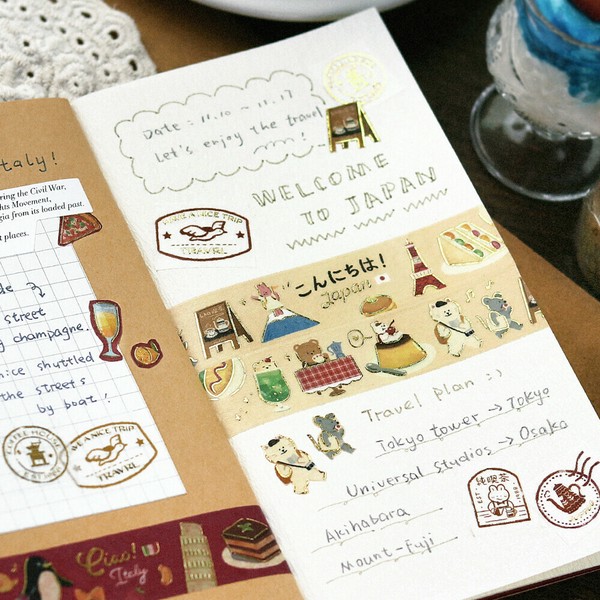 taly!
ring the Civil War,
hts Movement,
gia from its loaded past.
t places.
de
street
g champagne.
nice shuttled
the streets
by boat!
COFFEE HOUSE
EST
HAVE A NICE TRIP
TRAVEL
Ciao!
Italy
Date : 11.10 ~ 11.17
Let's enjoy the travel
!
WELCOME
TO JAPAN
HAVE A NICE TRIP
TRAVEL
こんにちは!
Japan
Travel plan :)
Tokyo tower → Tokyo
Universal Studios → Osaka
Akihabara
Mount-Fuji
純喫茶
EST